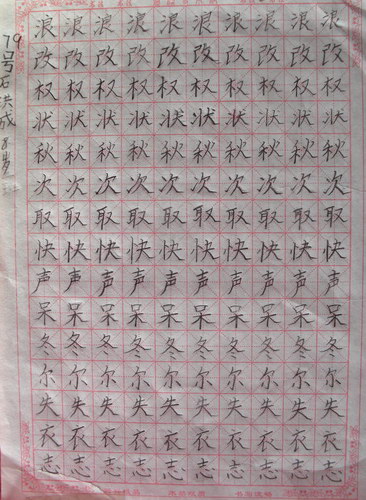 79号 洪成 8岁
浪浪浪浪浪浪浪浪浪浪
改改改改改改改改改改
权权权权权权权权权权
状状状状状状状状状状
秋秋秋秋秋秋秋秋秋秋
次次次次次次次次次次
取取取取取取取取取取
快快快快快快快快快快
声声声声声声声声声声
呆呆呆呆呆呆呆呆呆呆
冬冬冬冬冬冬冬冬冬冬
尔尔尔尔尔尔尔尔尔尔
失失失失失失失失失失
衣衣衣衣衣衣衣衣衣衣
志志志志志志志志志志